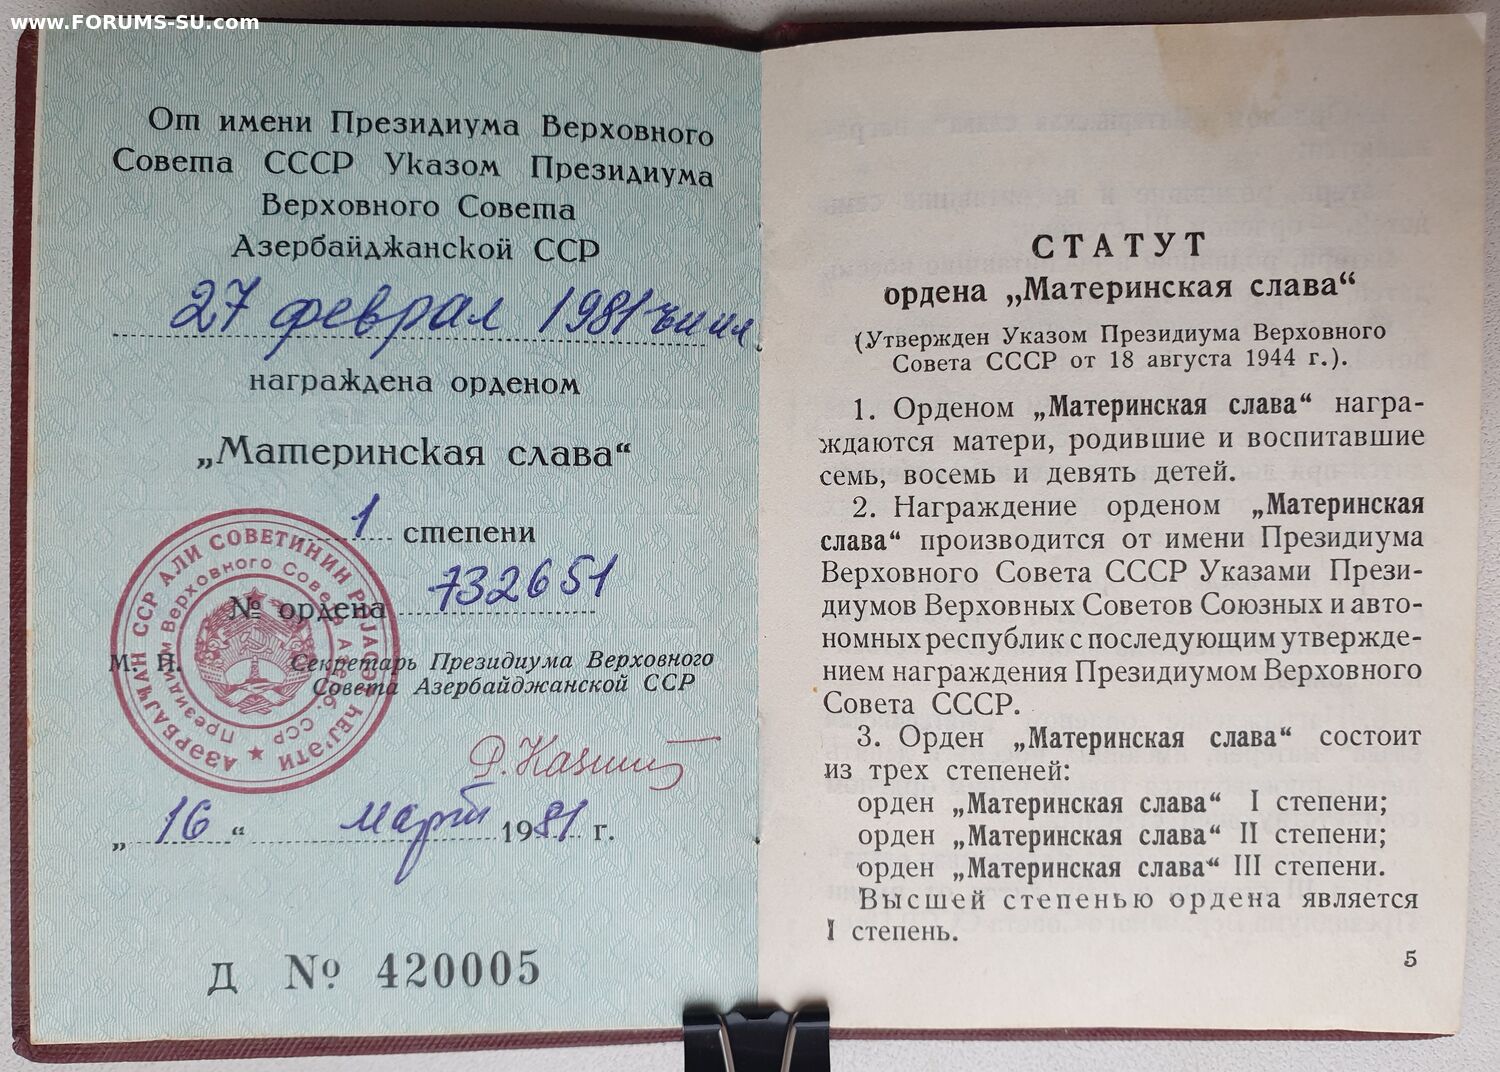 www.FORUMS-SU.com
От имени Президиума Верховного
Совета СССР Указом Президиума
Верховного Совета
Азербайджанской ССР
27 феврал 1981 ъил
награждена орденом
„Материнская слава“
1 степени
№ ордена 732651
М. П. Секретарь Президиума Верховного
Совета Азербайджанской ССР
„16“ март 1981 г.
Д № 420005
АЗӘРБАЈҸАН ССР АЛИ СОВЕТИНИН РӘЈАСӘТ ҺЕЈ’ӘТИ
Президиум Верховного Совета Азерб. ССР
СТАТУТ
ордена „Материнская слава“
(Утвержден Указом Президиума Верховного
Совета СССР от 18 августа 1944 г.).
1. Орденом „Материнская слава“ награ-
ждаются матери, родившие и воспитавшие
семь, восемь и девять детей.
2. Награждение орденом „Материнская
слава“ производится от имени Президиума
Верховного Совета СССР Указами Прези-
диумов Верховных Советов Союзных и авто-
номных республик с последующим утвержде-
нием награждения Президиумом Верховного
Совета СССР.
3. Орден „Материнская слава“ состоит
из трех степеней:
орден „Материнская слава“ I степени;
орден „Материнская слава“ II степени;
орден „Материнская слава“ III степени.
Высшей степенью ордена является
I степень.
5